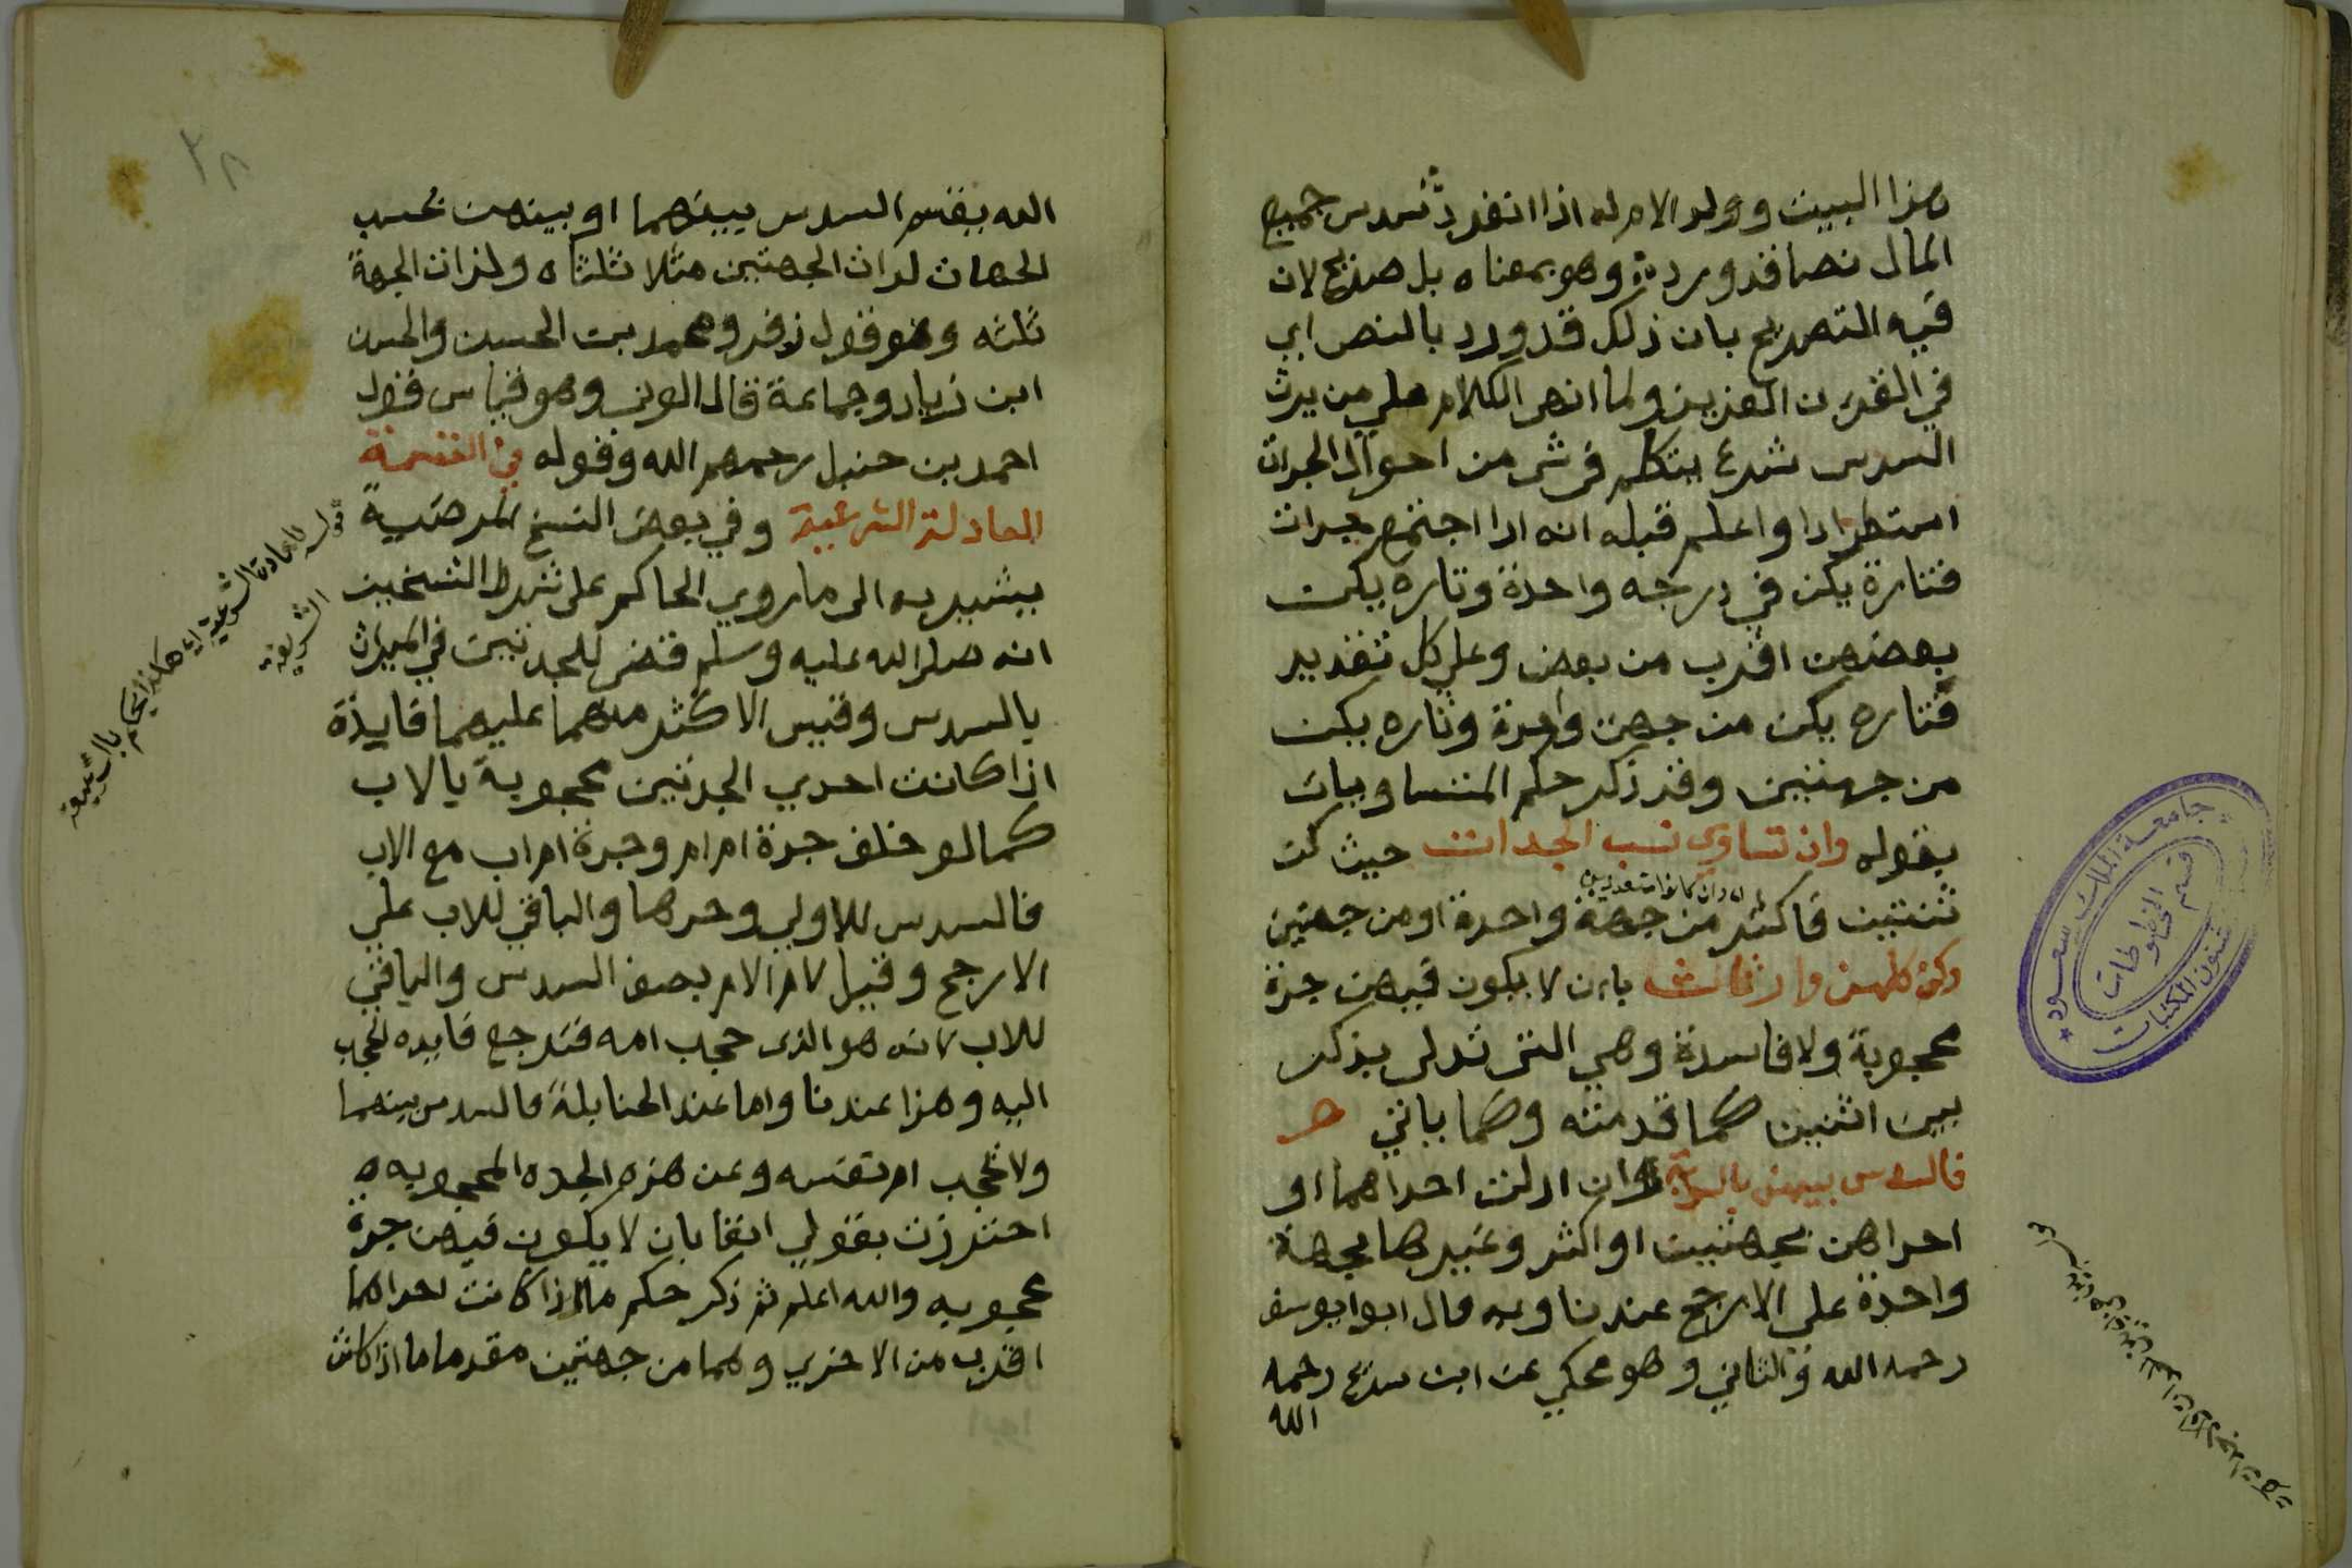 هذا البيت وولد الام له اذا انفرد سدس جميع
المال نصا قد ورد وهو بمعناه بل صريح لان
فيه التصريح بان ذلك قد ورد بالنص اي
في القران العزيز ولما انهى الكلام على من يرث
السدس شرع يتكلم في شي من احوال الجدات
استطرادا واعلم قبله انه اذا اجتمع جدات
فتارة يكن في درجه واحدة وتاره يكن
بعضهن اقرب من بعض وعلى كل تقدير
فتاره يكن من جهة واحدة وتاره يكن
من جهتين وقد ذكر حكم المتساويات
بقوله وان تساوى نسب الجدات حيث كن
ثنتين فاكثر من جهة واحدة او من جهتين
وكن كلهن وارثات بان لا يكون فيهن جدة
محجوبة ولا فاسدة وهي التى تدلى بذكر
بين انثيين كما قدمته وكما ياتي
فالسدس بينهن بالسوية وان ادلت احداهما او
احداهن بجهتين او اكثر وغيرها بجهة
واحدة على الارجح عندنا وبه قال ابوايوسف
رحمه الله والثاني وهو محكي عن ابن سريج رحمه
الله
جامعة الملك سعود
قسم المخطوطات
شئون المكتبات
٢٨
الله يقسم السدس بينهما او بينهن بحسب
الجهات لذات الجهتين مثلا ثلثاه ولذات الجهة
ثلثه وهو قول زفر ومحمد بن الحسين والحسن
ابن زياد وجماعة قال الوني وهو قياس قول
احمد بن حنبل رحمهم الله وقوله في القسمة
العادلة الشرعية وفي بعض النسخ المرضية
يشير به الى ما روي الحاكم على شرط الشيخين
انه صلى الله عليه وسلم قضى للجدتين في الميراث
بالسدس وقيس الاكثر منهما عليهما فايدة
اذا كانت احدي الجدتين محجوبة بالاب
كما لو خلف جدة ام ام وجدة ام اب مع الاب
فالسدس للاولي وحدها والباقي للاب علي
الارجح وقيل لام الام نصف السدس والباقي
للاب لانه هو الذى حجب امه فترجع فايده الحجب
اليه وهذا عندنا واما عند الحنابلة فالسدس بينهما
ولا يحجب ام نفسه وعن هذه الجده المحجوبه
احترزت بقولي انفا بان لا يكون فيهن جدة
محجوبه والله اعلم ثم ذكر حكم ما اذا كانت احداهما
اقرب من الاخري وهما من جهتين مقدما ما اذا كانت
قوله العادلة الشرعية اي هكذا الحاكم بالشريعة
الشريعة